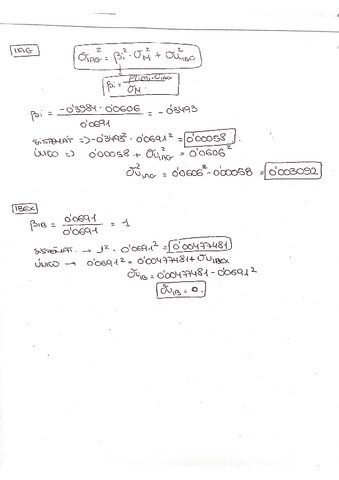 IAG
σ²IAG = βi² · σ²M + σ²υIAG
βi = ρi,M · σIAG / σM
βi = -0'3984 · 0'0606 / 0'0691 = -0'3493
SISTEMÁT => -0'3493² · 0'0691² = 0'00058
ÚNICO => 0'00058 + σ²υIAG = 0'0606²
σ²υIAG = 0'0606² - 0'00058 = 0'003092
IBEX
βIB = 0'0691 / 0'0691 = 1
SISTEMAT. → 1² · 0'0691² = 0'00477481
ÚNICO → 0'0691² = 0'00477481 + συIBEX
συIB = 0'00477481 - 0'0691²
συIB = 0.